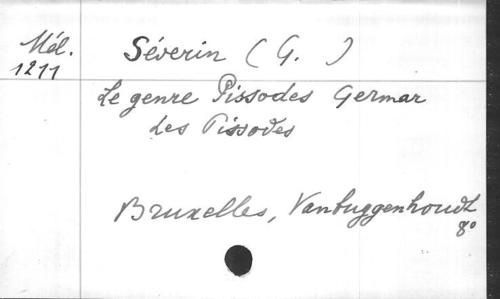 Mél.
1211
Séverin (G. )
Le genre Pissodes Germar
Les Pissodes
Bruxelles, Vanbuggenhoudt
8°